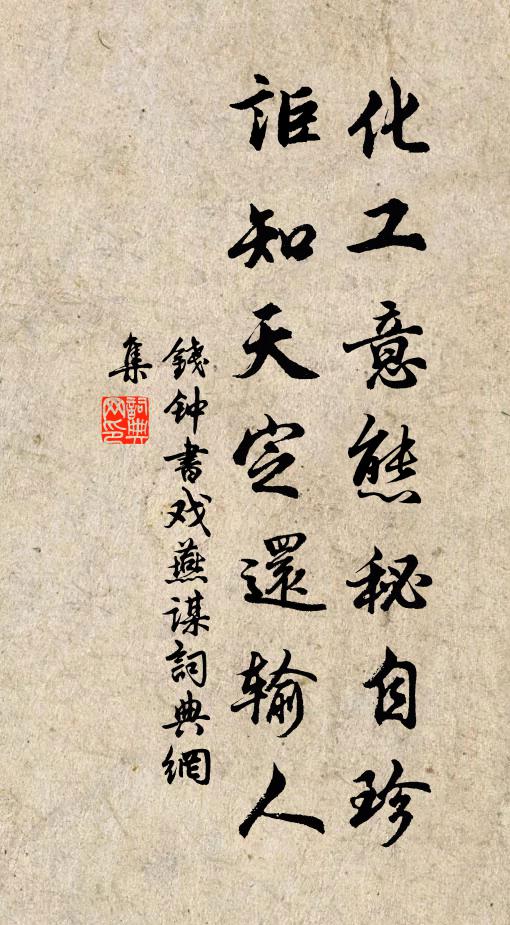 化工意態秘自珍
詎知天定還输人
錢钟書戏燕謀詞典網
集
詞典
网印